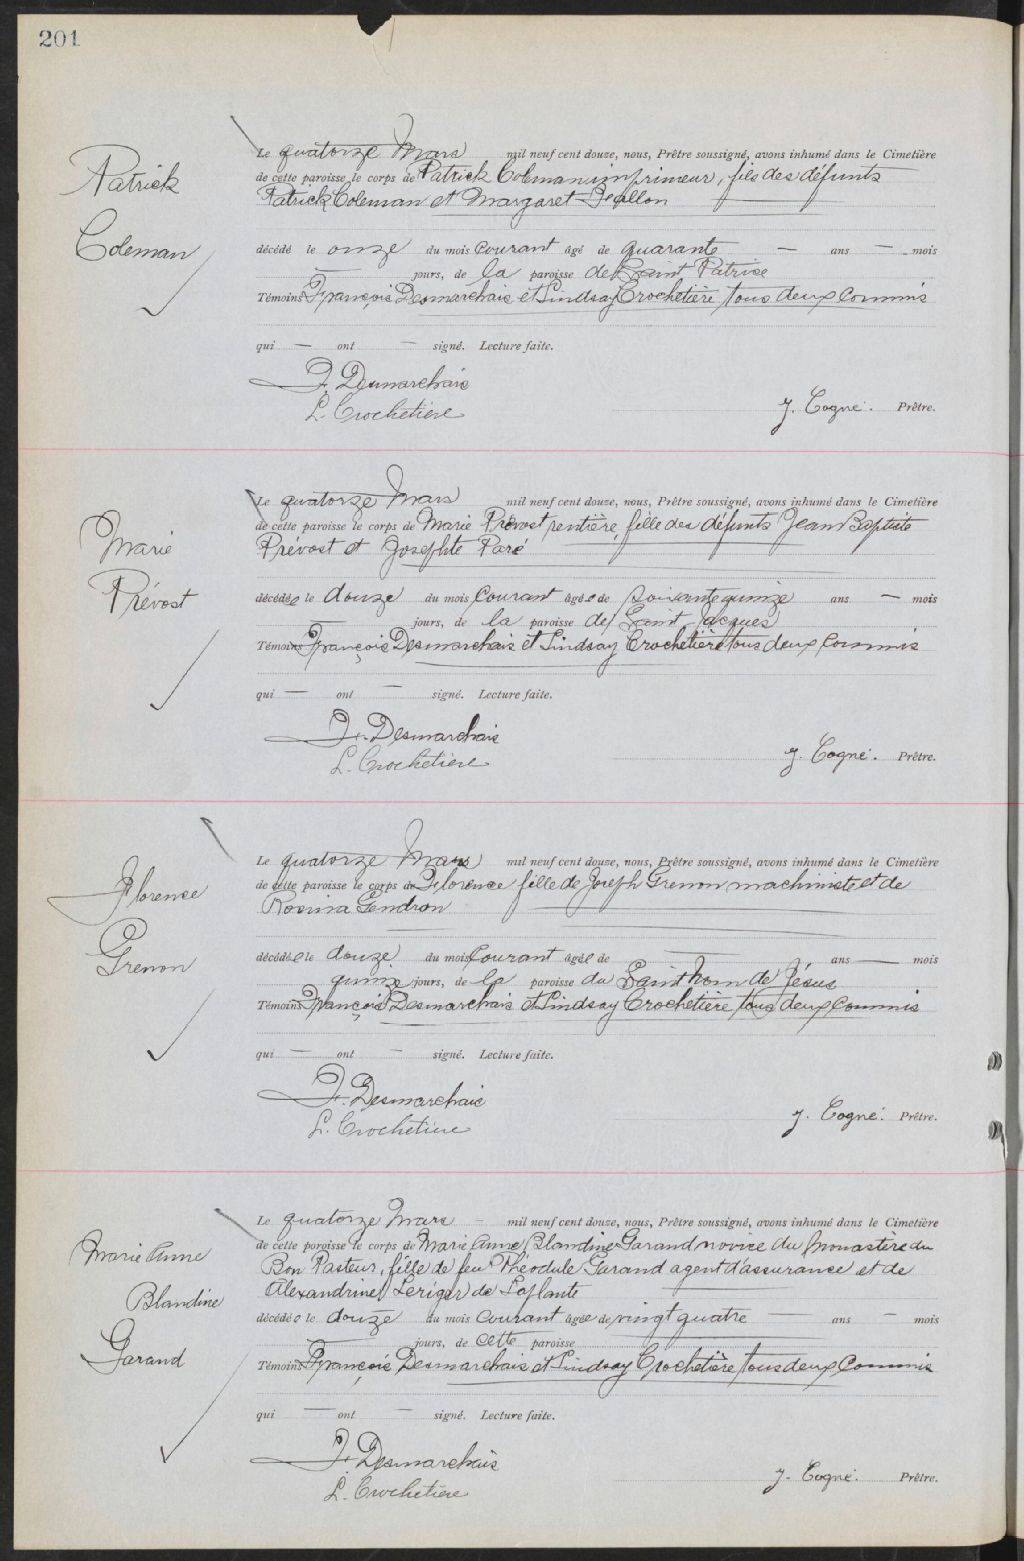 201
Patrick
Coleman
Le quatorze Mars mil neuf cent douze, nous, Prêtre soussigné, avons inhumé dans le Cimetière
de cette paroisse le corps de Patrick Coleman imprimeur, fils des défunts
Patrick Coleman et Margaret
décédé le onze du mois courant âgé de quarante — ans — mois
— jours, de la paroisse de Saint Patrice
Témoins François Desmarchais et Lindsay Crochetière tous deux Commis
qui — ont — signé. Lecture faite.
F. Desmarchais
L. Crochetiere
J. Cogné. Prêtre.
Marie
Prévost
Le quatorze Mars mil neuf cent douze, nous, Prêtre soussigné, avons inhumé dans le Cimetière
de cette paroisse le corps de Marie Prévost rentière, fille des défunts Jean Baptiste
Prévost et Josephte Paré
décédée le douze du mois courant âgée de soixante quinze ans — mois
— jours, de la paroisse de Saint Jacques
Témoins François Desmarchais et Lindsay Crochetière tous deux Commis
qui — ont — signé. Lecture faite.
F. Desmarchais
L. Crochetiere
J. Cogné. Prêtre.
Florence
Grenon
Le quatorze Mars mil neuf cent douze, nous, Prêtre soussigné, avons inhumé dans le Cimetière
de cette paroisse le corps de Florence fille de Joseph Grenon machiniste et de
Rosina Gendron
décédée le douze du mois courant âgée de — ans — mois
quinze jours, de la paroisse du Saint nom de Jésus
Témoins François Desmarchais et Lindsay Crochetière tous deux Commis
qui — ont — signé. Lecture faite.
F. Desmarchais
L. Crochetiere
J. Cogné. Prêtre.
Marie Anne
Blandine
Garand
Le quatorze Mars — mil neuf cent douze, nous, Prêtre soussigné, avons inhumé dans le Cimetière
de cette paroisse le corps de Marie Anne Blandine Garand novice du monastère du
Bon Pasteur, fille de feu Théodule Garand agent d'assurance et de
Alexandrine Leriger de Laplante
décédée le douze du mois courant âgée de vingt quatre — ans — mois
— jours, de cette paroisse
Témoins François Desmarchais et Lindsay Crochetière tous deux Commis
qui — ont — signé. Lecture faite.
F. Desmarchais
L. Crochetiere
J. Cogné. Prêtre.